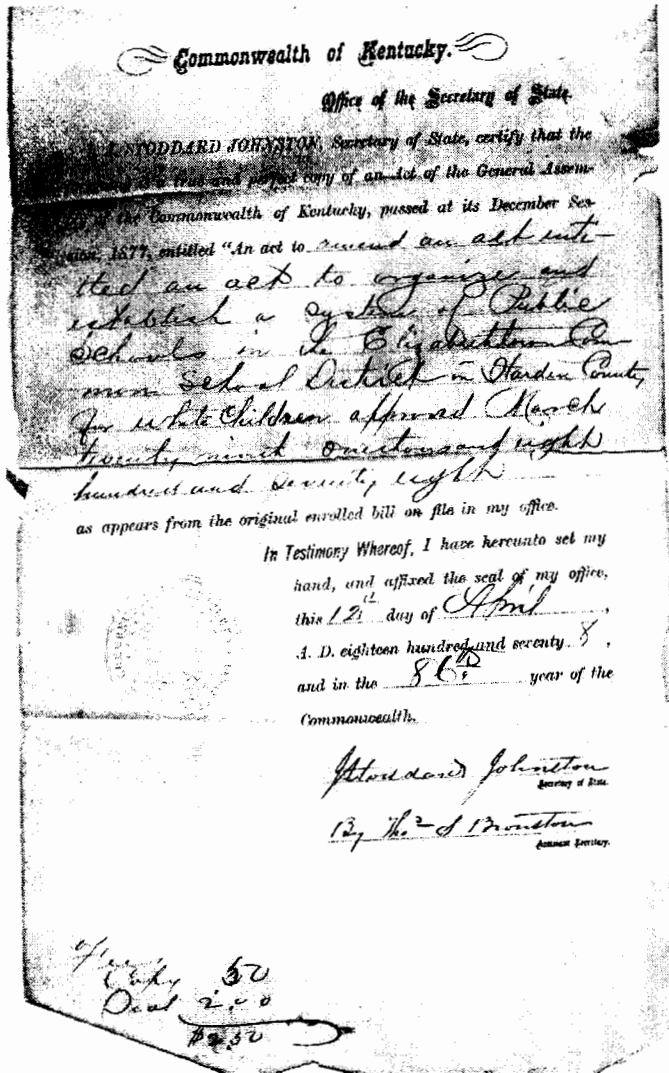 Commonwealth of Kentucky.
Office of the Secretary of State.
J. STODDARD JOHNSTON, Secretary of State, certify that the
true and perfect copy of an Act of the General Assem-
of the Commonwealth of Kentucky, passed at its December Ses-
sion, 1877, entitled "An act to amend an act enti-
tled an act to organize and
establish a system of Public
Schools in the Elizabethtown Com
mon School District in Hardin County,
for white Children approved March
twenty ninth one thousand eight
hundred and seventy eight
as appears from the original enrolled bill on file in my office.
In Testimony Whereof, I have hereunto set my
hand, and affixed the seal of my office,
this 12th day of April,
A. D. eighteen hundred and seventy 8,
and in the 86th year of the
Commonwealth.
J Stoddard Johnston
Secretary of State.
By Thos S Bronston
Assistant Secretary.
Copy 50
Seal 2.00
$2.50